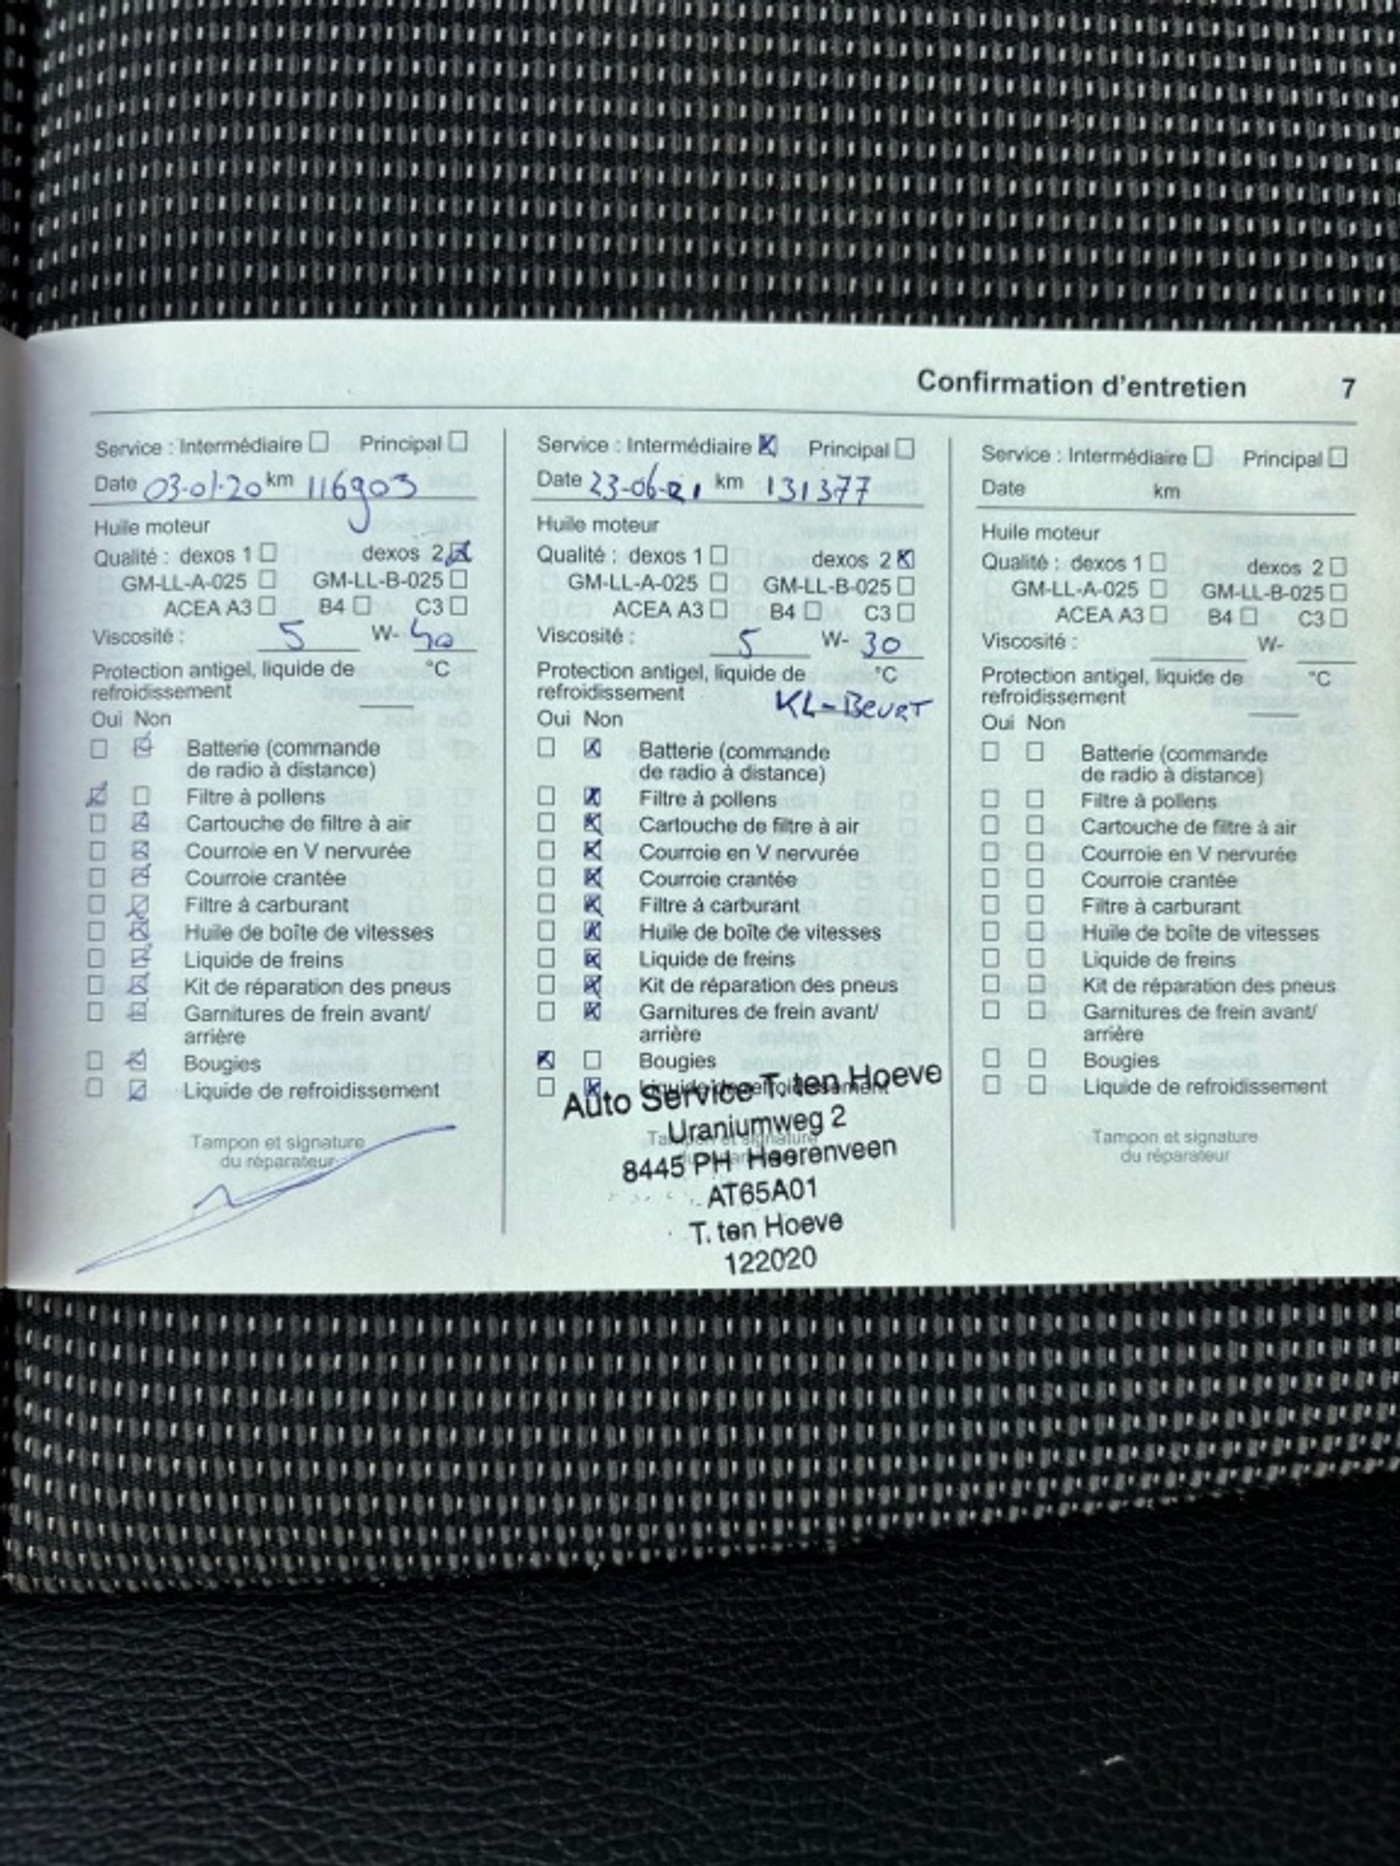 Confirmation d'entretien 7
Service : Intermédiaire ☐ Principal ☐
Date 03-01-20 km 116903
Huile moteur
Qualité : dexos 1 ☐ dexos 2 ☒
GM-LL-A-025 ☐ GM-LL-B-025 ☐
ACEA A3 ☐ B4 ☐ C3 ☐
Viscosité : 5 W- 40
Protection antigel, liquide de °C
refroidissement
Oui Non
☐ ☒ Batterie (commande
de radio à distance)
☒ ☐ Filtre à pollens
☐ ☒ Cartouche de filtre à air
☐ ☒ Courroie en V nervurée
☐ ☒ Courroie crantée
☐ ☒ Filtre à carburant
☐ ☒ Huile de boîte de vitesses
☐ ☒ Liquide de freins
☐ ☒ Kit de réparation des pneus
☐ ☒ Garnitures de frein avant/
arrière
☐ ☒ Bougies
☐ ☒ Liquide de refroidissement
Tampon et signature
du réparateur
Service : Intermédiaire ☒ Principal ☐
Date 23-06-21 km 131377
Huile moteur
Qualité : dexos 1 ☐ dexos 2 ☒
GM-LL-A-025 ☐ GM-LL-B-025 ☐
ACEA A3 ☐ B4 ☐ C3 ☐
Viscosité : 5 W- 30
Protection antigel, liquide de °C
refroidissement KL-Beurt
Oui Non
☐ ☒ Batterie (commande
de radio à distance)
☐ ☒ Filtre à pollens
☐ ☒ Cartouche de filtre à air
☐ ☒ Courroie en V nervurée
☐ ☒ Courroie crantée
☐ ☒ Filtre à carburant
☐ ☒ Huile de boîte de vitesses
☐ ☒ Liquide de freins
☐ ☒ Kit de réparation des pneus
☐ ☒ Garnitures de frein avant/
arrière
☒ ☐ Bougies
☐ ☒ Liquide de refroidissement
Auto Service T. ten Hoeve
Uraniumweg 2
Tampon et signature
8445 PH Heerenveen
du réparateur
AT65A01
T. ten Hoeve
122020
Service : Intermédiaire ☐ Principal ☐
Date km
Huile moteur
Qualité : dexos 1 ☐ dexos 2 ☐
GM-LL-A-025 ☐ GM-LL-B-025 ☐
ACEA A3 ☐ B4 ☐ C3 ☐
Viscosité : W-
Protection antigel, liquide de °C
refroidissement
Oui Non
☐ ☐ Batterie (commande
de radio à distance)
☐ ☐ Filtre à pollens
☐ ☐ Cartouche de filtre à air
☐ ☐ Courroie en V nervurée
☐ ☐ Courroie crantée
☐ ☐ Filtre à carburant
☐ ☐ Huile de boîte de vitesses
☐ ☐ Liquide de freins
☐ ☐ Kit de réparation des pneus
☐ ☐ Garnitures de frein avant/
arrière
☐ ☐ Bougies
☐ ☐ Liquide de refroidissement
Tampon et signature
du réparateur